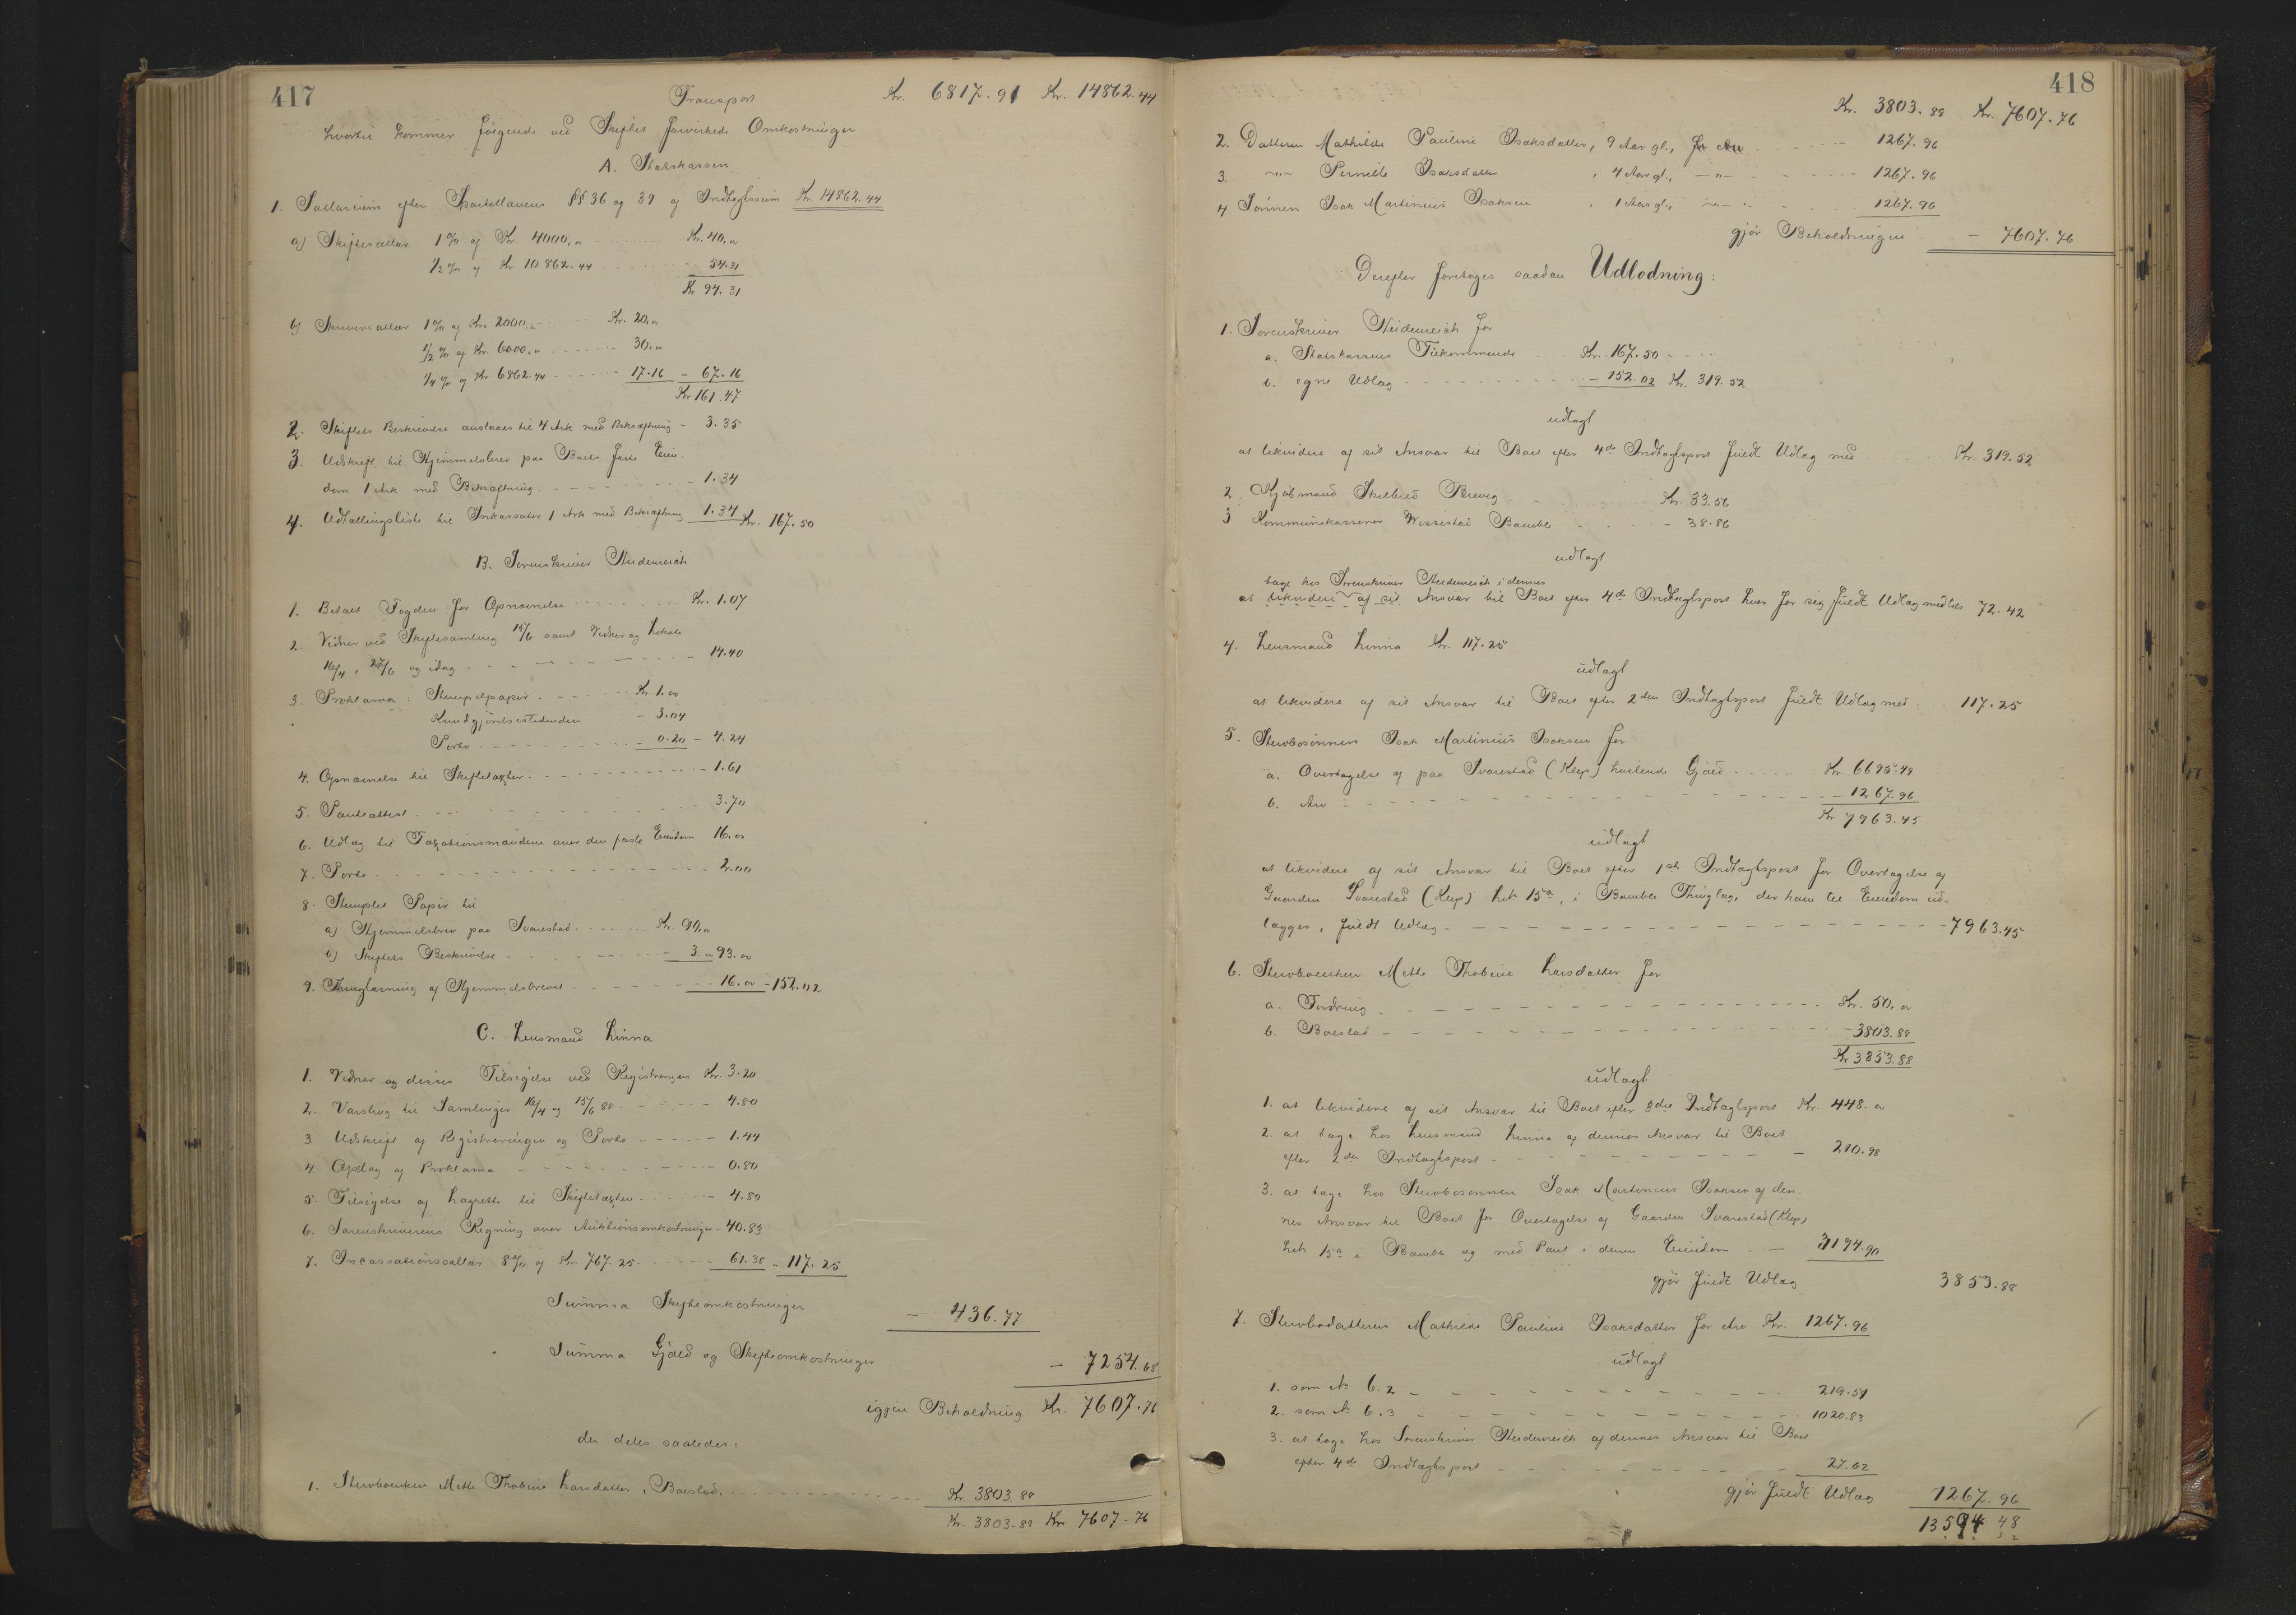 417
Transport Kr. 6817.91 Kr. 14862.44
hvortil kommer følgende ved Skiftet forvirkede Omkostninger
A. Statskassen
1. Sallarium efter Sportellovens §§ 36 og 39 af Indtægtssum Kr. 14862.44
a) Skiftesallar 1% af Kr. 4000,00 Kr. 40,00
1/2 % af Kr 10862.44 - 54.31
Kr 94.31
b) Skriversallar 1% af Kr. 2000,00 Kr. 20,00
1/2 % af Kr. 6000,00 - 30,00
1/4 % af Kr 6862.44 - 17.16 - 67.16
Kr 161.47
2. Skiftets Beskrivelse anslaaes til 4 Ark med Bekræftning - 3.35
3. Udskrift til Hjemmelsbrev paa Boets faste Eien-
dom 1 Ark med Bekræftning - 1.34
4. Udtællingsliste til Inkassator 1 Ark med Bekræftning 1.34 Kr. 167.50
B. Sorenskriver Heidenreich
1. Betalt Fogden for Opnævnelse Kr. 1.07
2. Vidner ved Skiftesamling 15/6 samt Vidner og Lokale
16/4, 27/6 og idag - 14.40
3. Proklama: Stempelpapir Kr. 1.00
Kundgjørelsestidenden - 3.04
Porto - 0.20 - 4.24
4. Opnævnelse til Skiftetaxter - 1.61
5. Panteattest - 3.70
6. Udlæg til Taxationsmændene over den faste Eiendom 16.00
7. Porto - 2.00
8. Stemplet Papir til
a) Hjemmelsbrev paa Svarestad Kr. 90,00
b) Skiftets Beskrivelse - 3.00 93.00
9. Thinglæsning af Hjemmelsbrevet - 16.00 - 152.02
C. Lensmand Linna
1. Vidner og disses Tilsigelse ved Registreringen Kr. 3.20
2. Varsling til Samlinger 16/4 og 15/6 88 - 4.80
3. Udskrift af Registreringen og Porto - 1.44
4. Opslag af Proklama - 0.80
5. Tilsigelse af Lagrette til Skiftetaxten - 4.80
6. Sorenskriverens Regning over Auktionsomkostninger - 40.83
7. Incassationssallar 8% af Kr. 767.25 - 61.38 - 117.25
Summa Skifteomkostninger - 436.77
Summa Gjæld og Skifteomkostninger - 7254.68
igjen Beholdning Kr. 7607.76
der deles saaledes:
1. Stervboenken Mette Thobine Larsdatter, Boeslod, Kr. 3803.88
Kr. 3803.88 Kr 7607.76
418
Kr. 3803.88 Kr. 7607.76
2. Datteren Mathilde Pauline Isaksdatter, 9 Aar gl., for Arv - 1267.96
3. -"- Pernille Isaksdatter, 4 Aar gl., -"- - 1267.96
4 Sønnen Isak Martinius Isaksen, 1 Aar gl., -"- - 1267.96
gjør Beholdningen - 7607.76
Derefter foretages saadan Udlodning:
1. Sorenskriver Heidenreich for
a. Statskassens Tilkommende Kr. 167.50
b. egne Udlæg - 152.02 Kr. 319.52
udlagt
at likvidere af sit Ansvar til Boet efter 4de Indtægtspost fuldt Udlæg med Kr. 319.52
2. Kjøbmand Brevig Kr. 33.56
3 Kommunekasserer Bamble - 38.86
udlagt
tage hos Sorenskriver Heidenreich i dennes
at likvidere af sit Ansvar til Boet efter 4de Indtægtspost hver for sig fuldt Udlæg med tils 72.42
4. Lensmand Linna Kr. 117.25
udlagt
at likvidere af sit Ansvar til Boet efter 2den Indtægtspost fuldt Udlæg med 117.25
5. Stervbosønnen Isak Martinius Isaksen for
a. Overtagelse af paa Svarestad (Klep) hvilende Gjæld Kr. 6695.49
b. Arv - 1267.96
Kr 7963.45
udlagt
at likvidere af sit Ansvar til Boet efter 1ste Indtægtspost for Overtagelse af
Gaarden Svarestad (Klep) Lnr 15a, i Bamble Thinglag, der ham til Eiendom ud-
lægges, fuldt Udlæg - 7963.45
6. Stervboenken Mette Thobine Larsdatter for
a. Fordring Kr. 50,00
b. Boeslod - 3803.88
Kr 3853.88
udlagt
1. at likvidere af sit Ansvar til Boet efter 3die Indtægtspost Kr. 448.00
2. at tage hos Lensmand Linna af dennes Ansvar til Boet
efter 2den Indtægtspost - 210.98
3. at tage hos Stervbosønnen Isak Martinius Isaksen af den-
nes Ansvar til Boet for Overtagelse af Gaarden Svarestad (Klep)
Lnr 15a i Bamble og med Pant i denne Eiendom - 3194.90
gjør fuldt Udlæg 3853.88
7. Stervbodatteren Mathilde Pauline Isaksdatter for Arv Kr. 1267.96
udlagt
1. som No 6.2 - 219.51
2. som No 6.3 - 1020.83
3. at tage hos Sorenskriver Heidenreich af dennes Ansvar til Boet
efter 4de Indtægtspost - 27.62
gjør fuldt Udlæg 1267.96
13594 48